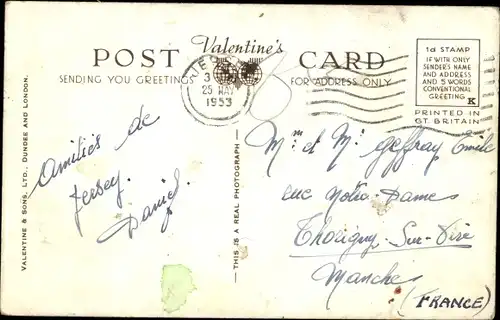 POST Valentine's CARD
SENDING YOU GREETINGS FOR ADDRESS ONLY
JE
3
25 MAY
1953
1d STAMP
IF WITH ONLY
SENDER'S NAME
AND ADDRESS
AND 5 WORDS
CONVENTIONAL
GREETING
K
PRINTED IN
GT. BRITAIN
VALENTINE & SONS, LTD., DUNDEE AND LONDON.
Amitiés de
Jersey.
Daniel.
THIS IS A REAL PHOTOGRAPH
Mme et Mr Geffray Emile
rue Notre-Dame
Thorigny-Sur-Vire
Manche
(FRANCE)